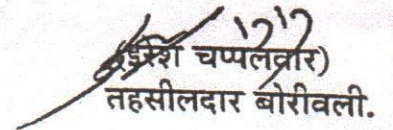 चप्पलवार)
तहसीलदार बोरीवली.